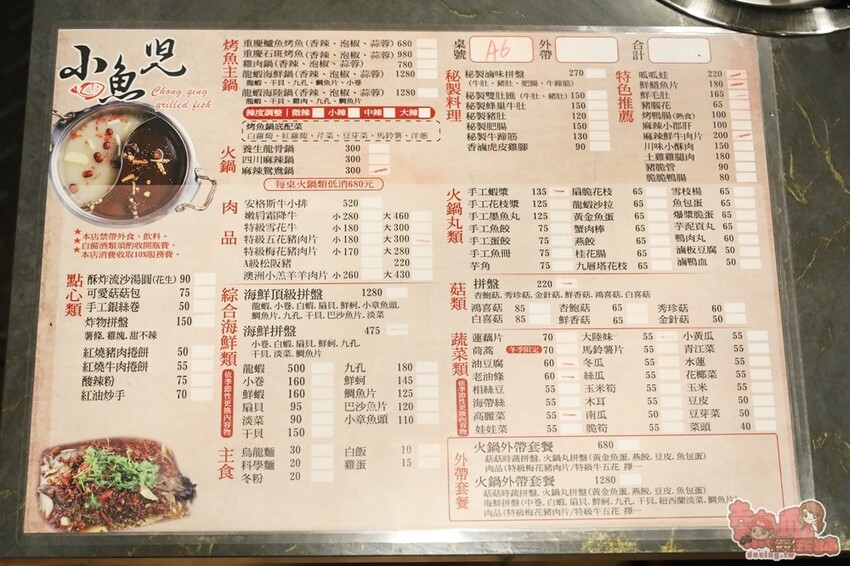 小魚児
Chong qing
grilled fish
★本店禁帶外食、飲料。
★自備酒類須酌收開瓶費。
★本店消費收取10%服務費。
點心類
酥炸流沙湯圓(花生) 90
可愛菇菇包 75
手工銀絲卷 50
炸物拼盤 150
薯條,雞塊,甜不辣
紅燒豬肉捲餅 50
紅燒牛肉捲餅 55
酸辣粉 75
紅油炒手 70
烤魚主鍋
重慶鱸魚烤魚(香辣、泡椒、蒜蓉) 680
重慶石斑烤魚(香辣、泡椒、蒜蓉) 980
雞肉鍋(香辣、泡椒、蒜蓉) 780
龍蝦海鮮鍋(香辣、泡椒、蒜蓉) 1280
龍蝦,干貝,九孔,鯛魚片,小卷
龍蝦海陸鍋(香辣、泡椒、蒜蓉) 1280
龍蝦,干貝,雞肉,九孔,鯛魚片
辣度調整 | 微辣 小辣 中辣 大辣
烤魚鍋底配菜
白蘿蔔,紅蘿蔔,芹菜,豆芽菜,馬鈴薯,洋蔥
火鍋
養生龍骨鍋 300
四川麻辣鍋 300
麻辣鴛鴦鍋 300
每桌火鍋類低消680元
肉品
安格斯牛小排 520
嫩肩霜降牛 小280 大460
特級雪花牛 小180 大300
特級五花豬肉片 小180 大300
特級梅花豬肉片 小170 大280
A級松阪豬 220
澳洲小羔羊羊肉片 小260 大430
綜合海鮮類
依季節性更換內容物
海鮮頂級拼盤 1280
龍蝦,小卷,白蝦,扇貝,鮮蚵,小章魚頭,
鯛魚片,九孔,干貝,巴沙魚片,淡菜
海鮮拼盤 475
小卷,白蝦,扇貝,鮮蚵,九孔,
干貝,淡菜,鯛魚片
龍蝦 500 九孔 180
小卷 160 鮮蚵 145
鮮蝦 160 鯛魚片 125
扇貝 95 巴沙魚片 120
淡菜 90 小章魚頭 110
干貝 150
主食
烏龍麵 30 白飯 10
科學麵 20 雞蛋 15
冬粉 20
桌號 A6 外帶 合計
秘製料理
秘製滷味拼盤 270
(牛肚、豬肚、肥腸、牛蹄筋)
秘製雙肚匯(牛肚、豬肚) 150
秘製蜂巢牛肚 150
秘製豬肚 120
秘製肥腸 150
秘製牛蹄筋 130
香滷虎皮雞腳 90
特色推薦
呱呱蛙 220
鮮鱔魚片 180
鮮毛肚 165
豬腦花 65
烤鴨腸(熟食) 100
麻辣小郡肝 100
麻辣鮮牛肉片 200
川味小酥肉 150
土雞雞腿肉 180
豬脆管 90
脆脆鴨腸 80
火鍋丸類
手工蝦漿 135 扁脆花枝 65 雪枝楊 65
手工花枝漿 125 龍蝦沙拉 65 魚包蛋 65
手工墨魚丸 125 黃金魚蛋 65 爆漿脆蛋 65
手工魚餃 90 蟹肉棒 65 芋泥貢丸 65
手工蛋餃 90 燕餃 65 鴨肉丸 65
手工魚冊 90 桂花腸 65 滷板豆腐 50
芋角 90 九層塔花枝 65 滷鴨血 50
菇類
拼盤 220
杏鮑菇,秀珍菇,金針菇,鮮香菇,鴻喜菇,白喜菇
鴻喜菇 85 杏鮑菇 65 秀珍菇 60
白喜菇 85 鮮香菇 65 金針菇 50
蔬菜類
依季節性更換內容物
蓮藕片 70 大陸妹 55 小黃瓜 55
茼蒿 冬季限定 70 馬鈴薯片 55 青江菜 55
油豆腐 60 冬瓜 55 水蓮 55
老油條 60 絲瓜 55 花椰菜 55
粗絲豆 55 玉米筍 55 玉米 55
海帶絲 55 木耳 55 豆皮 50
高麗菜 55 南瓜 50 豆芽菜 50
娃娃菜 55 脆筍 50 菜頭 40
外帶套餐
火鍋外帶套餐 680
菇菇時蔬拼盤,火鍋丸拼盤(黃金魚蛋,燕餃,豆皮,魚包蛋)
肉品(特級梅花豬肉片/特級牛五花 擇一
火鍋外帶套餐 1280
菇菇時蔬拼盤,火鍋丸拼盤(黃金魚蛋,燕餃,豆皮,魚包蛋)
海鮮拼盤(中卷,白蝦,扇貝,鮮蚵,九孔,干貝,紐西蘭淡菜,鯛魚片)
肉品(特級梅花豬肉片/特級牛五花 擇一
deeing.tw